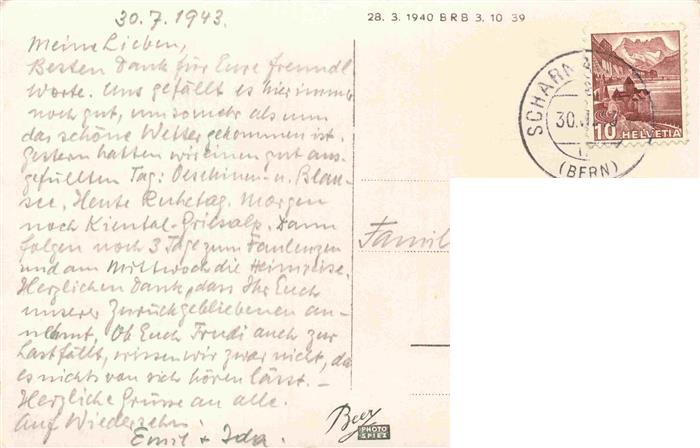 30.7.1943.
Meine Lieben,
Besten Dank für Eure freundl.
Worte. Uns gefällt es hier immer
noch gut, umsomehr als nun
das schöne Wetter gekommen ist.
Gestern hatten wir einen gut aus-
gefüllten Tag: Oeschinen- u. Blau-
see. Heute Ruhetag. Morgen
noch Kiental-Griesalp. Dann
folgen noch 3 Tage zum Faulenzen
und am Mittwoch die Heimreise.
Herzlichen Dank, dass Ihr Euch
unserer Zurückgebliebenen an-
nehmt. Ob Euch Trudi auch zur
Last fällt, wissen wir zwar nicht, da
es nichts von sich hören lässt. –
Herzliche Grüsse an alle.
Auf Wiedersehn!
Emil + Ida.
28. 3. 1940 B R B 3. 10 39
SCHARN
30.
(BERN)
10 HELVETIA
Famil
Beez
PHOTO
SPIEZ